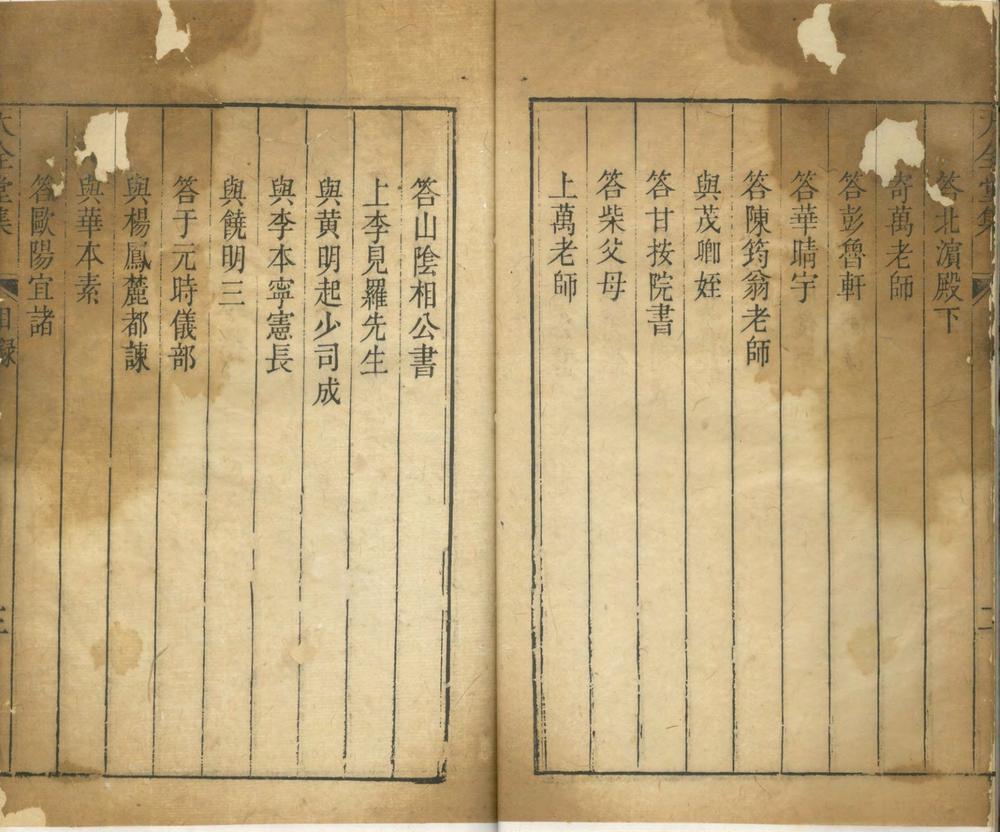 大全堂集
二
答北濵殿下
寄萬老師
答彭魯軒
答華晴宇
答陳筠翁老師
與茂卿姪
答甘按院書
答柴父母
上萬老師
答山陰相公書
上李見羅先生
與黄明起少司成
與李本寧憲長
與饒明三
答于元時儀部
與楊鳳麓都諫
與華本素
答歐陽宜諸
大全堂集
目録
三